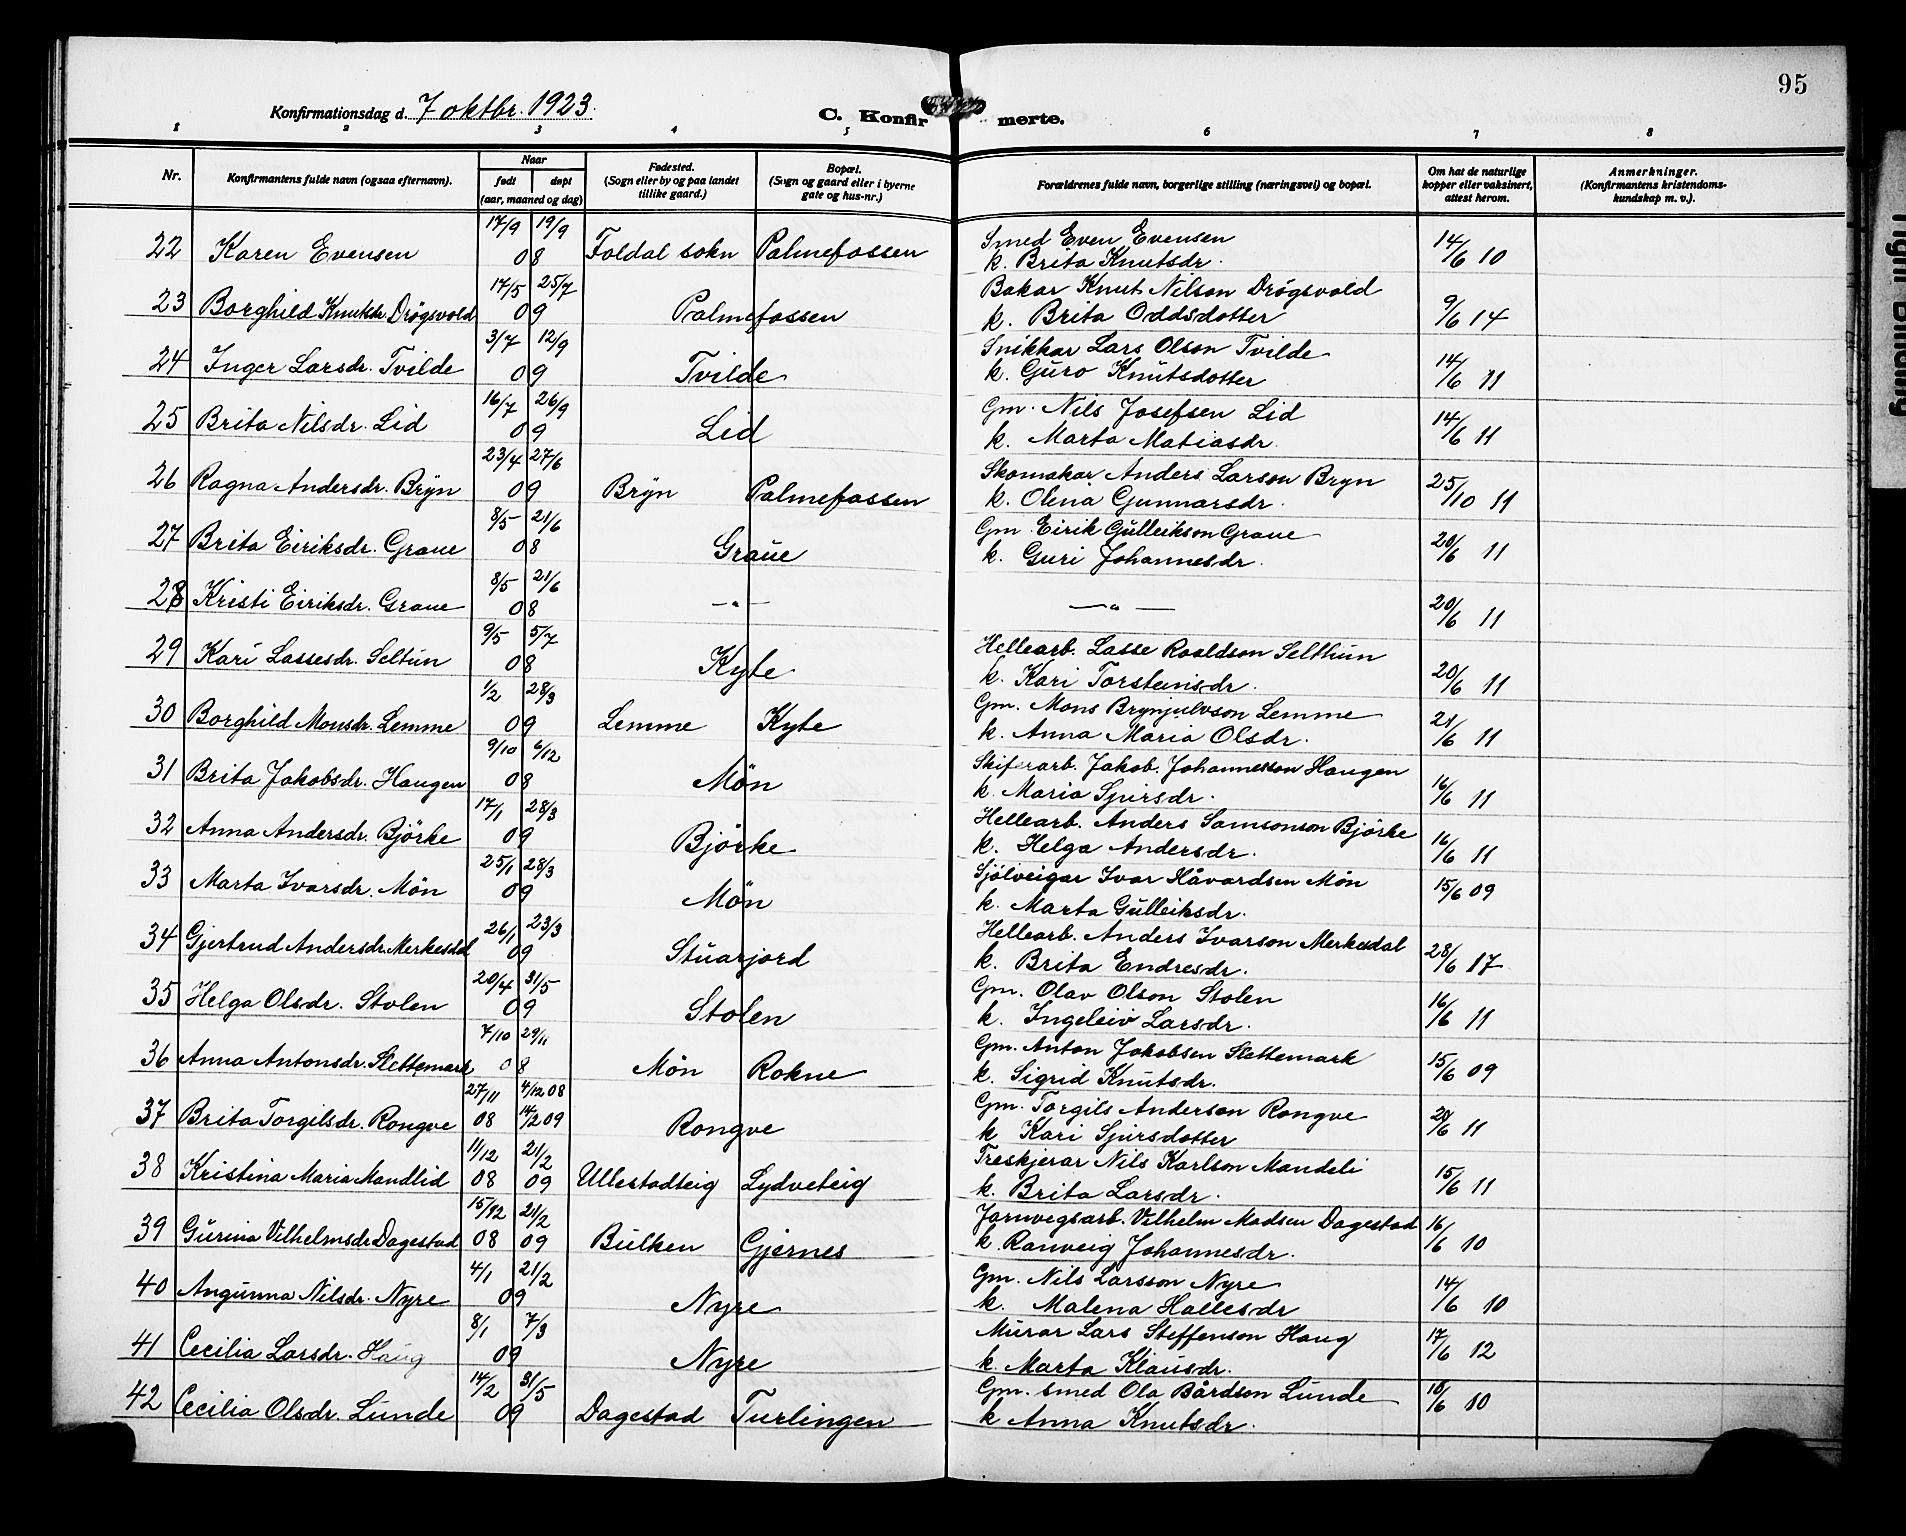 95
Konfirmationsdag d. 7 oktbr. 1923.
C. Konfirmerte.
1 2 3 4 5 6 7 8
Nr. Konfirmantens fulde navn (ogsaa efternavn). Naar født døpt (aar, maaned og dag) Fødested. (Sogn eller by og paa landet tillike gaard.) Bopæl. (Sogn og gaard eller i byerne gate og hus-nr.) Forældrenes fulde navn, borgerlige stilling (næringsvei) og bopæl. Om hat de naturlige kopper eller vaksinert, attest herom. Anmerkninger. (Konfirmantens kristendoms-kundskap m. v.).
22 Karen Evensen 17/9 19/9 08 Foldal sokn Palmefossen Smed Even Evensen
k. Brita Knutsdr. 14/6 10
23 Borghild Knutsdr Drögsvold 17/5 25/7 09 Palmefossen Bakar Knut Nilson Drögsvold
k. Brita Oddsdotter 9/6 14
24 Inger Larsdr. Tvilde 3/7 12/9 09 Tvilde Snikkar Lars Olson Tvilde
k. Guro Knutsdotter 14/6 11
25 Brita Nilsdr. Lid 16/7 26/9 09 Lid Gm. Nils Josefsen Lid
k. Marta Matiasdr. 14/6 11
26 Ragna Andersdr. Bryn 23/4 27/6 09 Bryn Palmefossen Skomakar Anders Larson Bryn
k. Olena Gunnarsdr. 25/10 11
27 Brita Eiriksdr. Graue 8/5 21/6 08 Graue Gm. Eirik Gulleikson Graue
k. Guri Johannesdr. 20/6 11
28 Kristi Eiriksdr. Graue 8/5 21/6 08 —"— —"— 20/6 11
29 Kari Lassesdr. Seltun 9/5 5/7 08 Kyte Hellearb. Lasse Roaldson Selthun
k. Kari Torsteinsdr. 20/6 11
30 Borghild Monsdr. Lemme 1/2 28/3 09 Lemme Kyte Gm. Mons Brynjulvson Lemme
k. Anna Maria Olsdr. 21/6 11
31 Brita Jakobsdr. Haugen 9/10 6/12 08 Mön Skiferarb. Jakob. Johannesson Haugen
k. Maria Sjursdr. 16/6 11
32 Anna Andersdr. Björke 17/1 28/3 09 Björke Hellearb. Anders Samsonson Björke
k. Helga Andersdr. 16/6 11
33 Marta Ivarsdr. Mön 25/1 28/3 09 Mön Sjölveigar Ivar Håvardsen Mön
k. Marta Gulleiksdr. 15/6 09
34 Gjertrud Andersdr. Merkesdal 26/1 23/3 09 Stuarjord Hellearb. Anders Ivarson Merkesdal
k. Brita Endresdr. 28/6 17
35 Helga Olsdr. Stolen 20/4 31/5 09 Stolen Gm. Olav Olson Stolen
k. Ingeleiv Larsdr. 16/6 11
36 Anna Antonsdr. Slettemark 7/10 29/11 08 Mön Rokne Gm. Anton Jakobsen Slettemark
k. Sigrid Knutsdr. 15/6 09
37 Brita Torgilsdr. Rongve 27/11 08 4/12 08 14/2 09 Rongve Gm. Torgils Anderson Rongve
k Kari Sjursdotter 20/6 11
38 Kristina Maria Mandlid 11/12 08 21/2 09 Ullestadteig Lydveteig Treskjerar Nils Karlson Mandeli
k. Brita Larsdr. 15/6 11
39 Gurina Vilhelmsdr Dagestad 15/12 08 21/2 09 Bulken Gjernes Jarnvegsarb. Vilhelm Madsen Dagestad
k. Ranveig Johannesdr. 16/6 10
40 Angunna Nilsdr. Nyre 4/1 21/2 09 Nyre Gm. Nils Larsson Nyre
k. Malena Hallesdr 14/6 10
41 Cecilia Larsdr. Haug 8/1 7/3 09 Nyre Murar Lars Steffenson Haug
k. Marta Klausdr. 17/6 12
42 Cecilia Olsdr. Lunde 14/2 31/5 09 Dagestad Turlingen Gm. smed Ola Bårdson Lunde
k Anna Knutsdr. 18/6 10